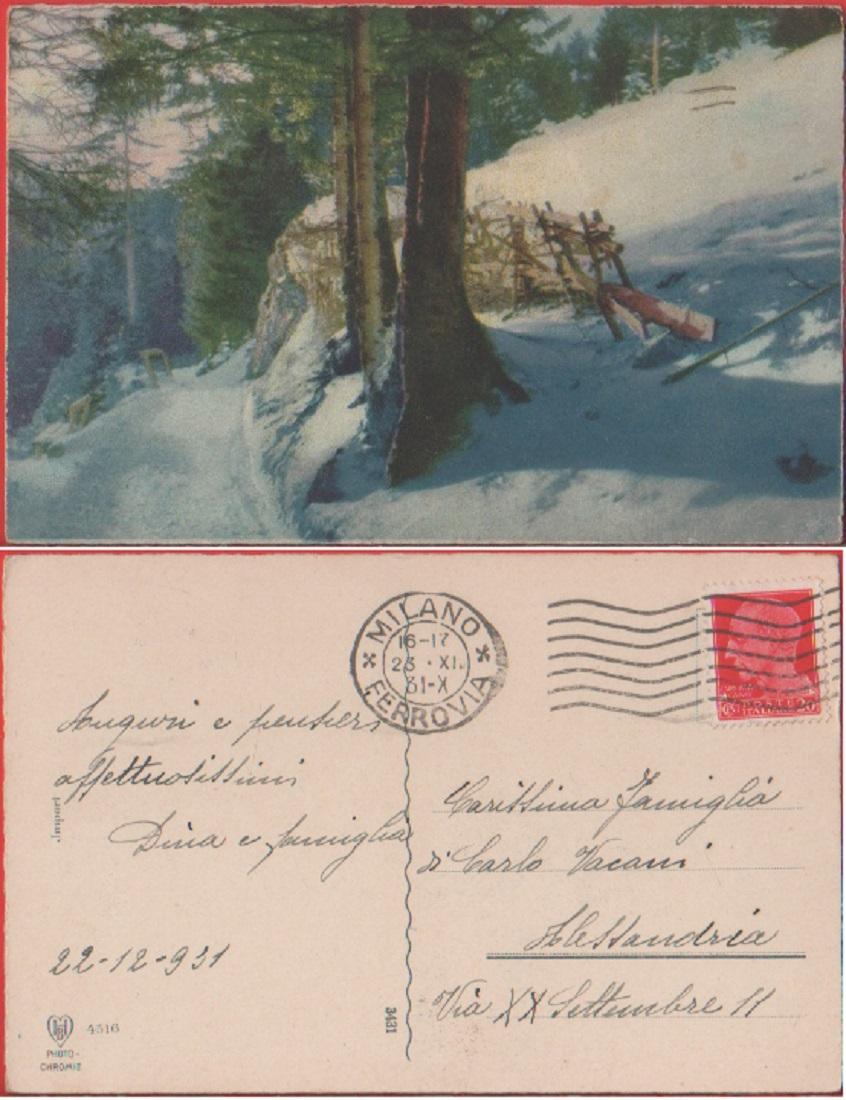 MILANO
16-17
23 · XI.
31-X
FERROVIA
Auguri e pensieri
affettuosissimi
Dina e famiglia
22-12-931
Import
Carissima Famiglia
di Carlo Vacani
Alessandria
Via XX Settembre 11
3431
4516
PHOTO-
CHROMIE